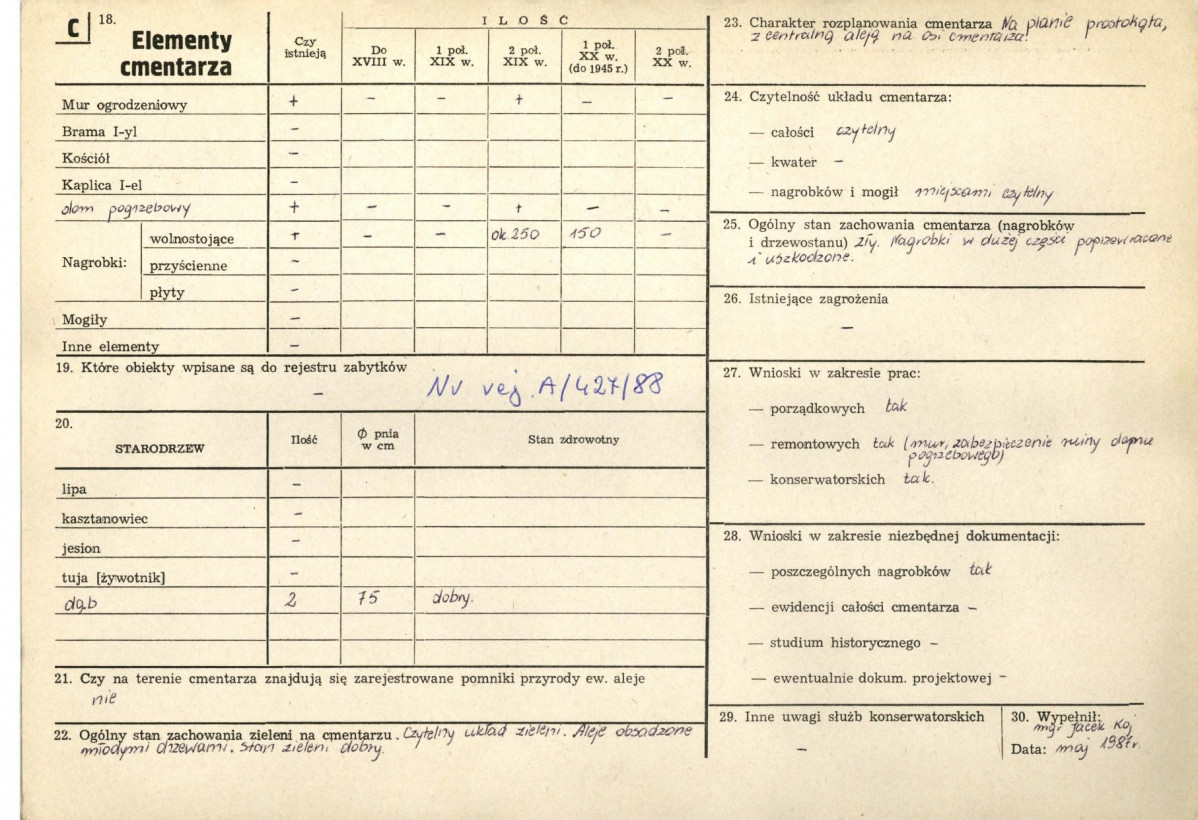 C
18. Elementy
cmentarza
Czy istnieją
ILOŚĆ
Do XVIII w.
1 poł. XIX w.
2 poł. XIX w.
1 poł. XX w. (do 1945 r.)
2 poł. XX w.
Mur ogrodzeniowy + – – + – –
Brama I-yl –
Kościół –
Kaplica I-el –
dom pogrzebowy + – – + – –
Nagrobki:
wolnostojące + – – ok 250 150 –
przyścienne –
płyty –
Mogiły –
Inne elementy –
19. Które obiekty wpisane są do rejestru zabytków
– Nr rej. A/427/88
20. STARODRZEW
Ilość
Ø pnia w cm
Stan zdrowotny
lipa –
kasztanowiec –
jesion –
tuja [żywotnik] –
dąb 2 75 dobry.
21. Czy na terenie cmentarza znajdują się zarejestrowane pomniki przyrody ew. aleje
nie
22. Ogólny stan zachowania zieleni na cmentarzu. Czytelny układ zieleni. Aleje obsadzone
młodymi drzewami. Stan zieleni dobry.
23. Charakter rozplanowania cmentarza Na planie prostokąta,
z centralną aleją na osi cmentarza.
24. Czytelność układu cmentarza:
— całości czytelny
— kwater –
— nagrobków i mogił miejscami czytelny
25. Ogólny stan zachowania cmentarza (nagrobków
i drzewostanu) zły. Nagrobki w dużej części poprzewracane
i uszkodzone.
26. Istniejące zagrożenia
–
27. Wnioski w zakresie prac:
— porządkowych tak
— remontowych tak (mur, zabezpieczenie ruiny domu
pogrzebowego)
— konserwatorskich tak.
28. Wnioski w zakresie niezbędnej dokumentacji:
— poszczególnych nagrobków tak
— ewidencji całości cmentarza –
— studium historycznego –
— ewentualnie dokum. projektowej –
29. Inne uwagi służb konserwatorskich
–
30. Wypełnił:
mgr Jacek Koj
Data: maj 1987r.